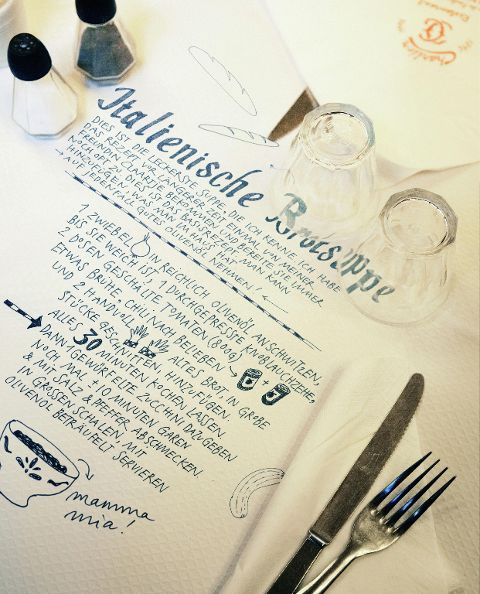 Italienische Brotsuppe
DIES IST DIE LECKERSTE SUPPE, DIE ICH KENNE. ICH HABE
DAS REZEPT VOR LÄNGERER ZEIT EINMAL VON MEINER
FREUNDIN BEKOMMEN UND BEREITE SIE IMMER
NOCH OFT ZU. DIES IST DAS MAN KANN
HINZUFÜGEN, WAS MAN IM HAUS HAT
AUF JEDEN FALL GUTES OLIVENÖL NEHMEN!
1 ZWIEBEL IN REICHLICH OLIVENÖL ANSCHWITZEN,
BIS SIE WEICH IST, 1 DURCHGEPRESSTE KNOBLAUCHZEHE,
2 DOSEN GESCHÄLTE TOMATEN (800g)
ETWAS BRÜHE, CHILI NACH BELIEBEN
UND 2 HANDVOLL ALTES BROT, IN GROBE
STÜCKE GESCHNITTEN, HINZUFÜGEN.
ALLES 30 MINUTEN KOCHEN LASSEN.
DANN 1 GEWÜRFELTE ZUCCHINI DAZUGEBEN
NOCH MAL +10 MINUTEN GAREN
& MIT SALZ & PFEFFER ABSCHMECKEN.
IN GROSSEN SCHALEN, MIT
OLIVENÖL BETRÄUFELT SERVIEREN
mamma
mia!